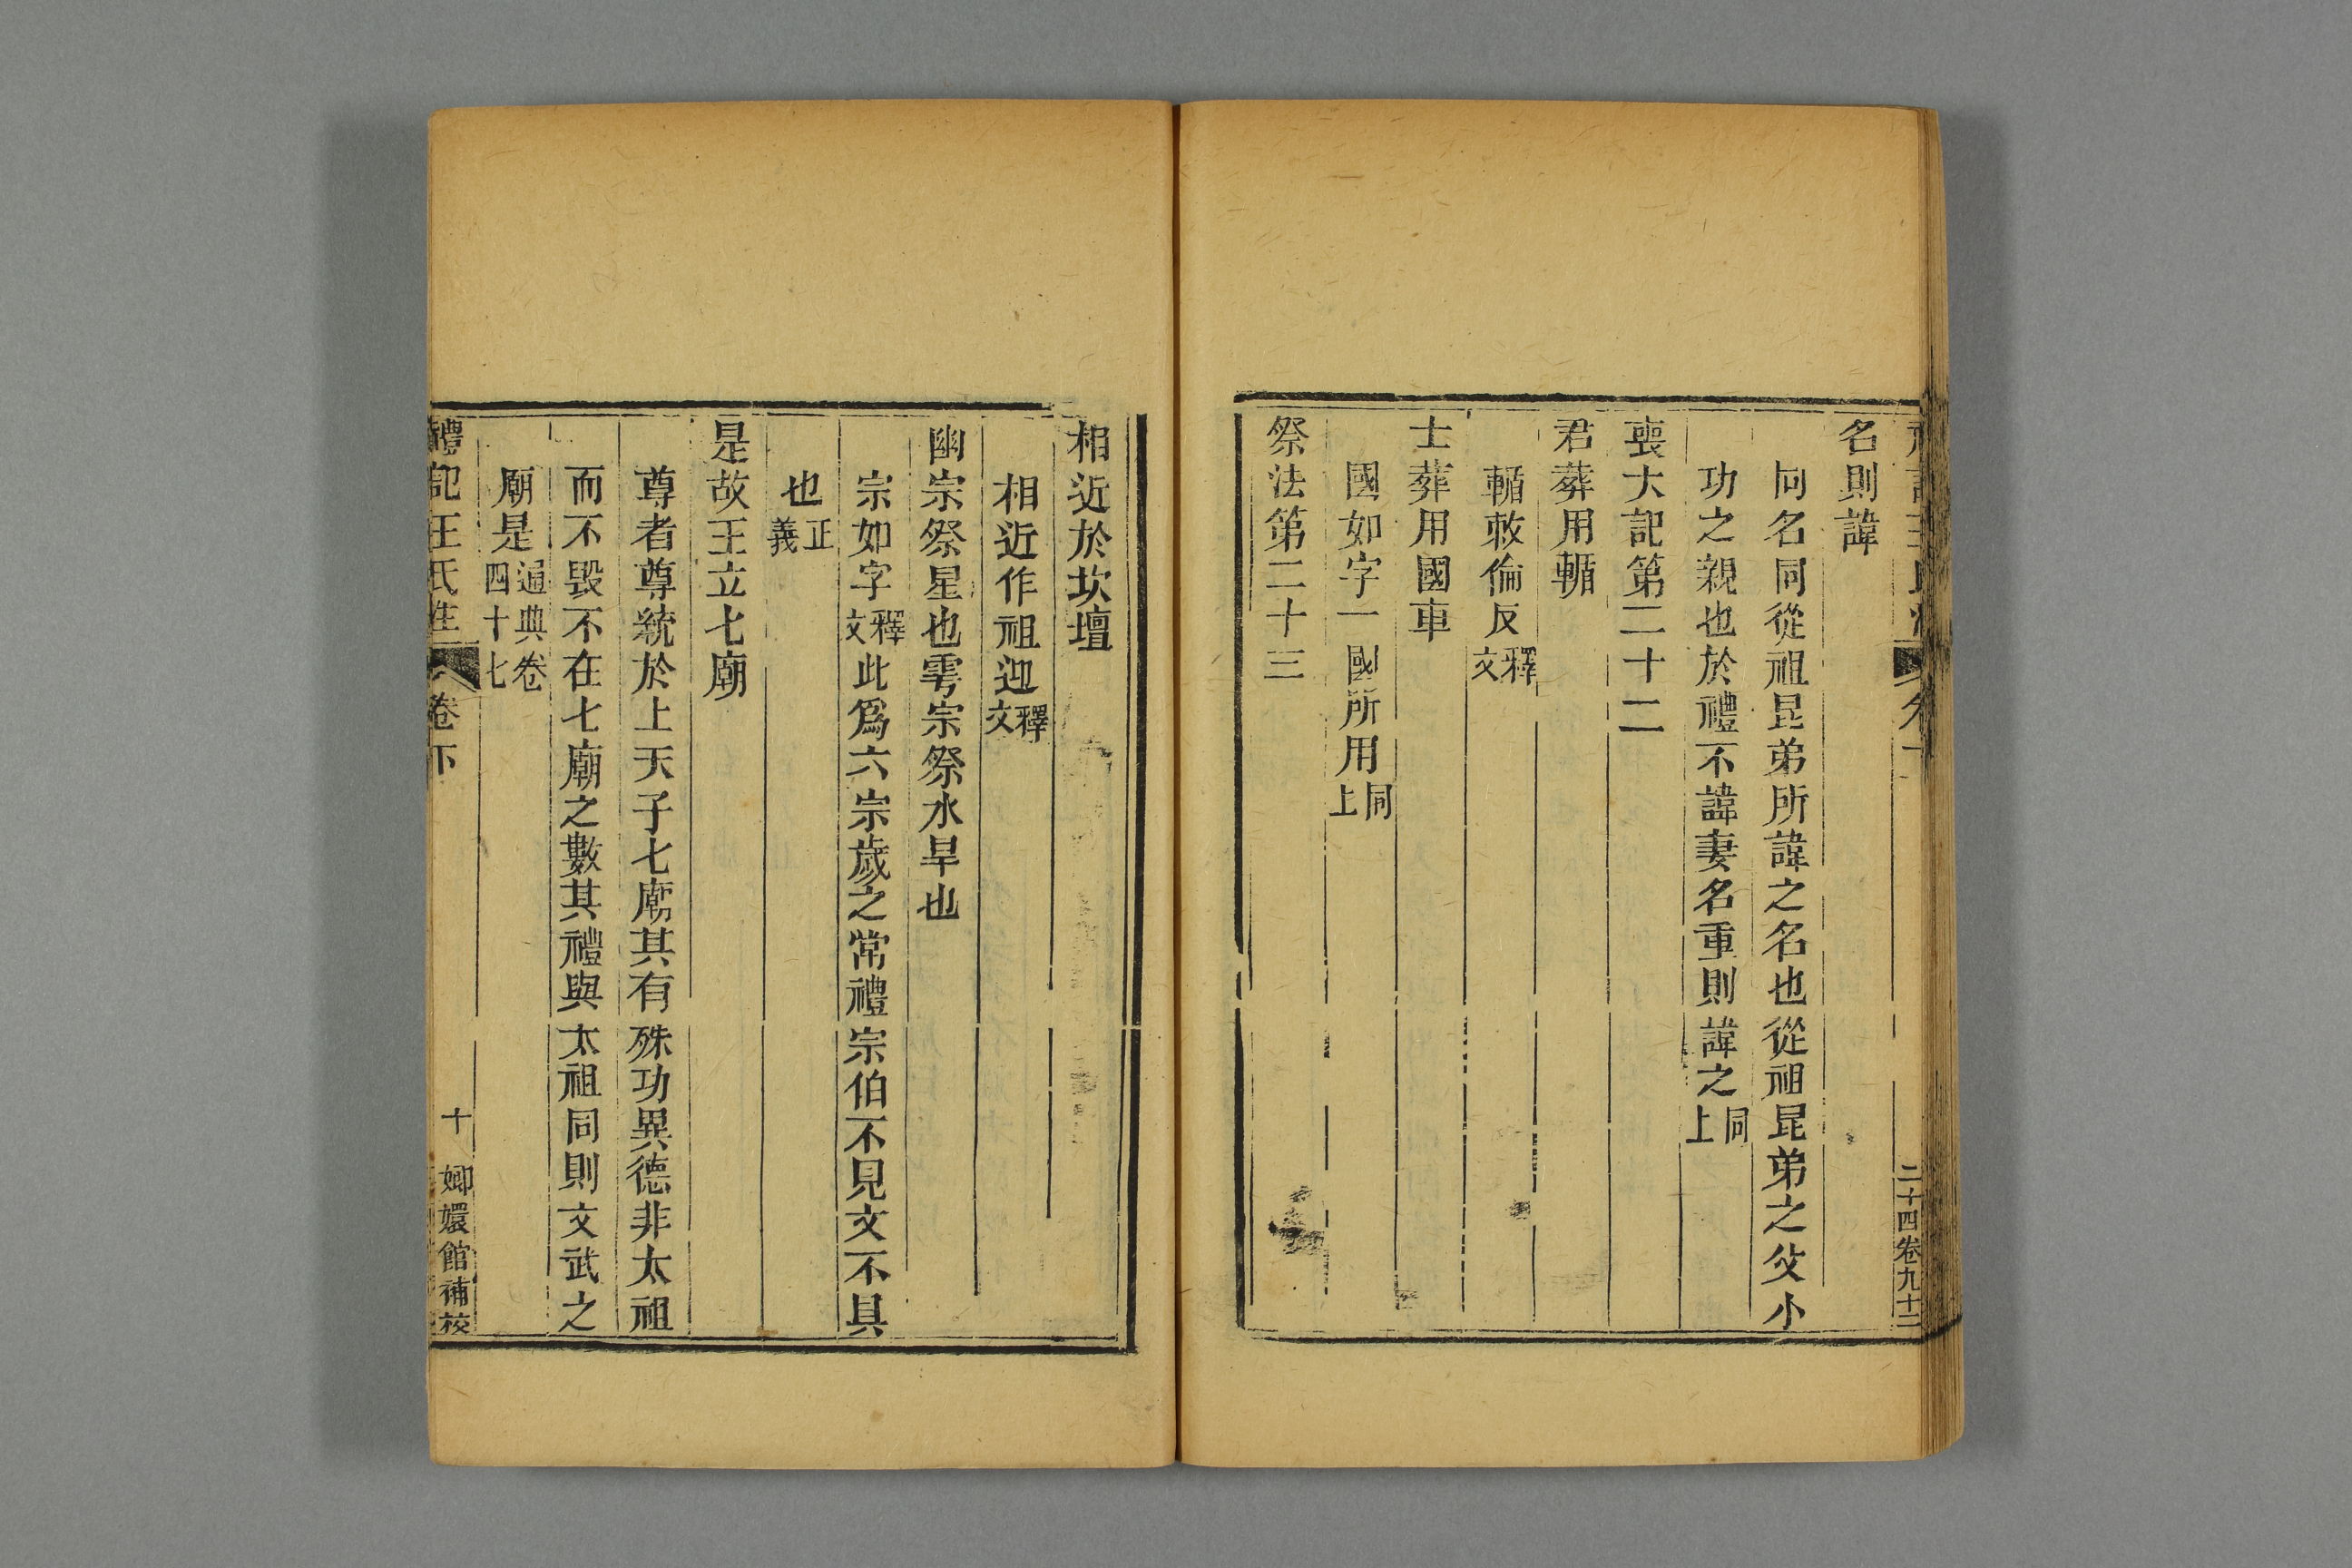 二十四卷九十二
名則諱
同名同從祖昆弟所諱之名也從祖昆弟之父小
功之親也於禮不諱妻名重則諱之同上
喪大記第二十二
君葬用輴
輴敕倫反釋文
士葬用國車
國如字一國所用同上
祭法第二十三
相近於坎壇
相近作祖迎釋文
幽宗祭星也雩宗祭水旱也
宗如字釋文此爲六宗歲之常禮宗伯不見文不具
也正義
是故王立七廟
尊者尊統於上天子七廟其有殊功異德非太祖
而不毁不在七廟之數其禮與太祖同則文武之
廟是通典卷四十七
禮記王氏注 卷下 十 嫏嬛館補校